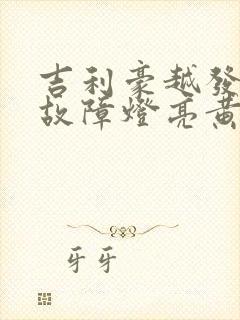 吉利豪越發
故障燈亮黃
牙牙